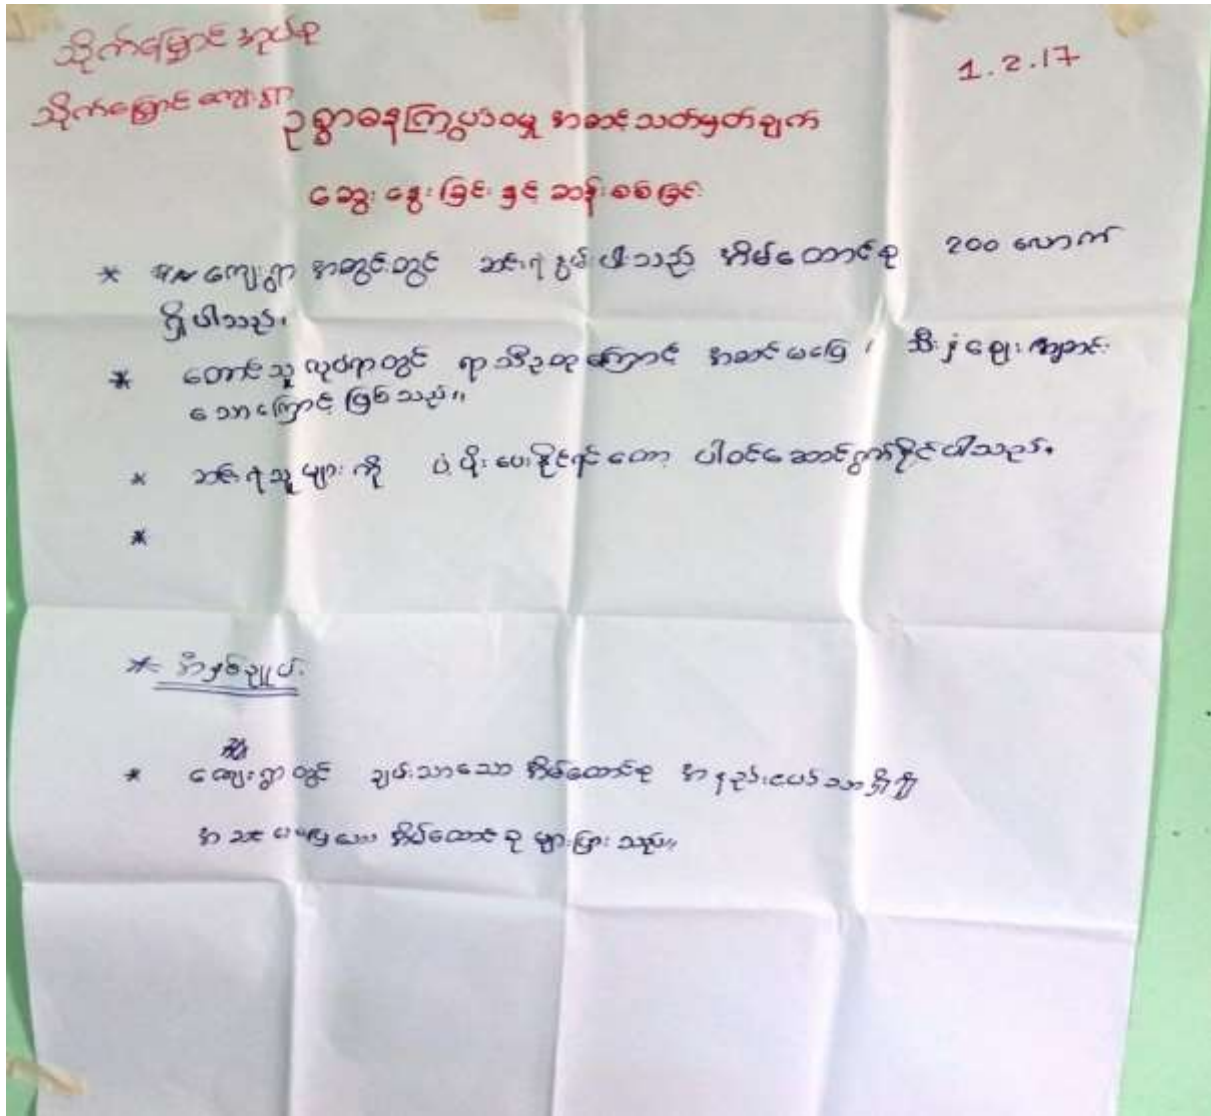 သိုက်မြှောင် အုပ်စု
1.2.17
သိုက်မြှောင် ကျေးရွာ
ဥစ္စာဓနကြွယ်ဝမှု အဆင့်သတ်မှတ်ချက်
ဆွေးနွေးခြင်း နှင့် ဆန်းစစ်ခြင်း
* ကျေးရွာ အတွင်းတွင် ဆင်းရဲနွမ်းပါးသည့် အိမ်ထောင်စု 200 လောက်
ရှိပါသည်။
* တောင်သူလုပ်ရာတွင် ရာသီဥတုကြောင့် အဆင်မပြေ၊ သီးနှံဈေးကျဆင်း
သောကြောင့် ဖြစ်သည်။
* ဆင်းရဲသူများ ကို ပံ့ပိုးပေးနိုင်ရင်တော့ ပါဝင်ဆောင်ရွက်နိုင်ပါသည်။
*
* အနှစ်ချုပ်
* ကျေးရွာတွင် ချမ်းသာသော အိမ်ထောင်စု အနည်းငယ်သာရှိ၍
အဆင်မပြေသော အိမ်ထောင်စု များပြားသည်။